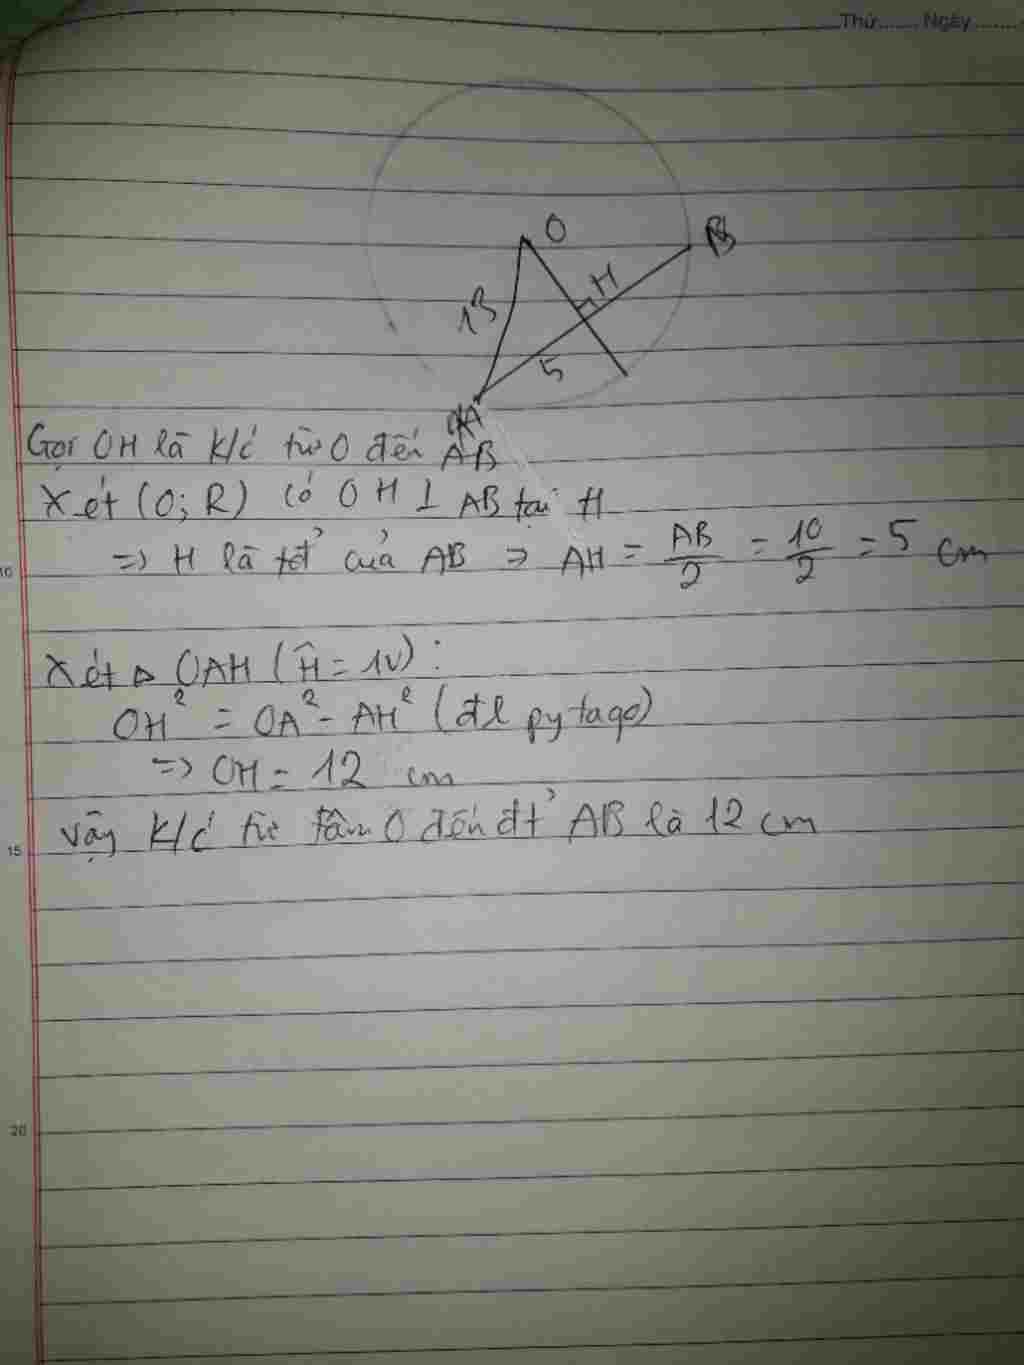 Thứ....... Ngày........
O
B
H
13
5
A
Gọi OH là k/c từ O đến AB
Xét (O; R) có OH ⊥ AB tại H
=> H là tđ' của AB => AH = AB/2 = 10/2 = 5 cm
10
Xét Δ OAH (Ĥ = 1V):
OH² = OA² - AH² (đl pytago)
=> OH = 12 cm
Vậy k/c từ tâm O đến đt' AB là 12 cm
15
20